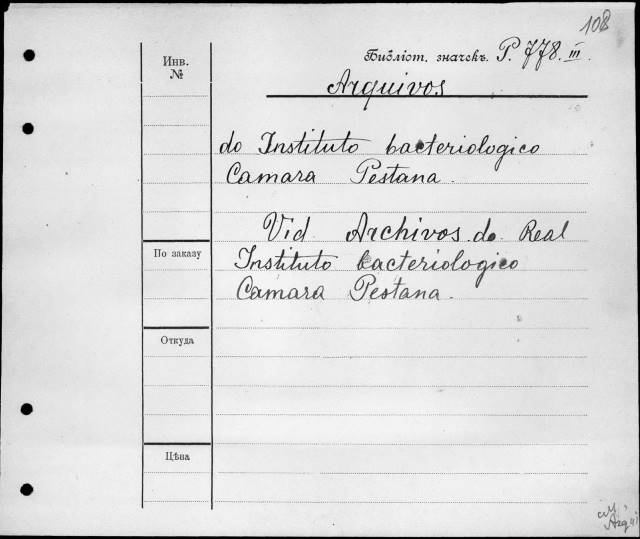 108
Инв. №
Библіот. значекъ P. 778. III.
Arquivos
do Instituto bacteriologico
Camara Pestana.
Vid. Archivos do Real
По заказу
Instituto bacteriologico
Camara Pestana.
Откуда
Цѣна